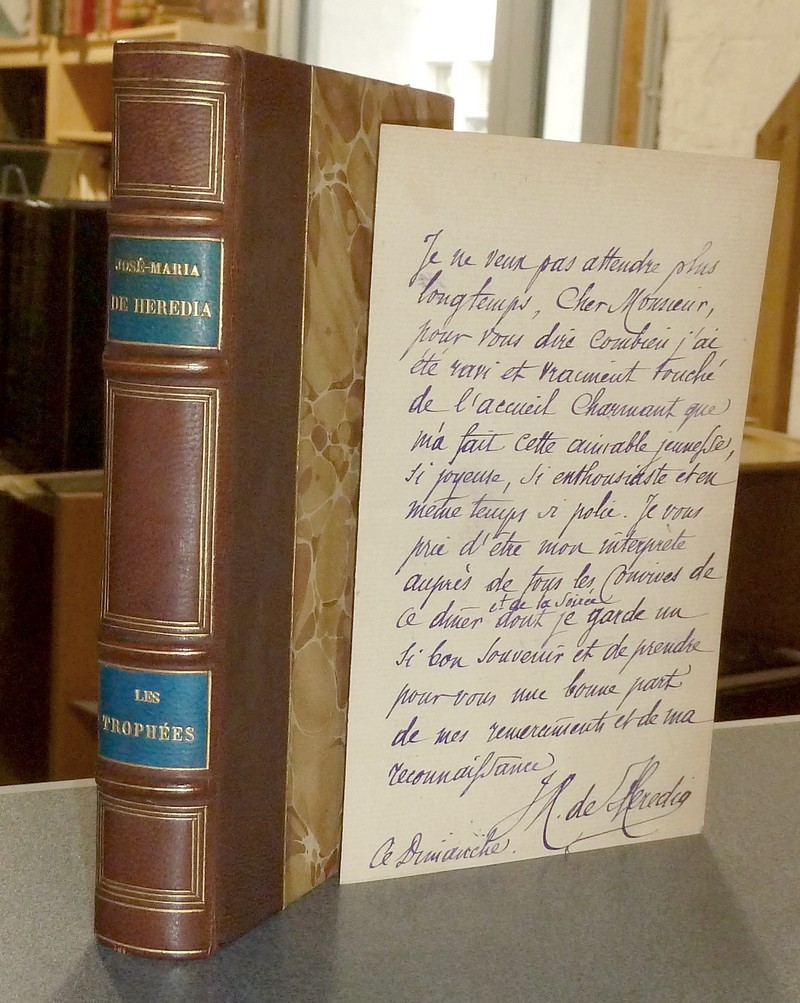 JOSÉ-MARIA
DE HEREDIA
LES
TROPHÉES
Je ne veux pas attendre plus
longtemps, Cher Monsieur,
pour vous dire combien j'ai
été ravi et vraiment touché
de l'accueil charmant que
m'a fait cette aimable jeunesse,
si joyeuse, si enthousiaste et en
même temps si polie. Je vous
prie d'être mon interprète
auprès de tous les convives de
et de la soirée
ce dîner dont je garde un
si bon souvenir et de prendre
pour vous une bonne part
de mes remerciments et de ma
reconnaissance
JM. de Heredia
Ce Dimanche.